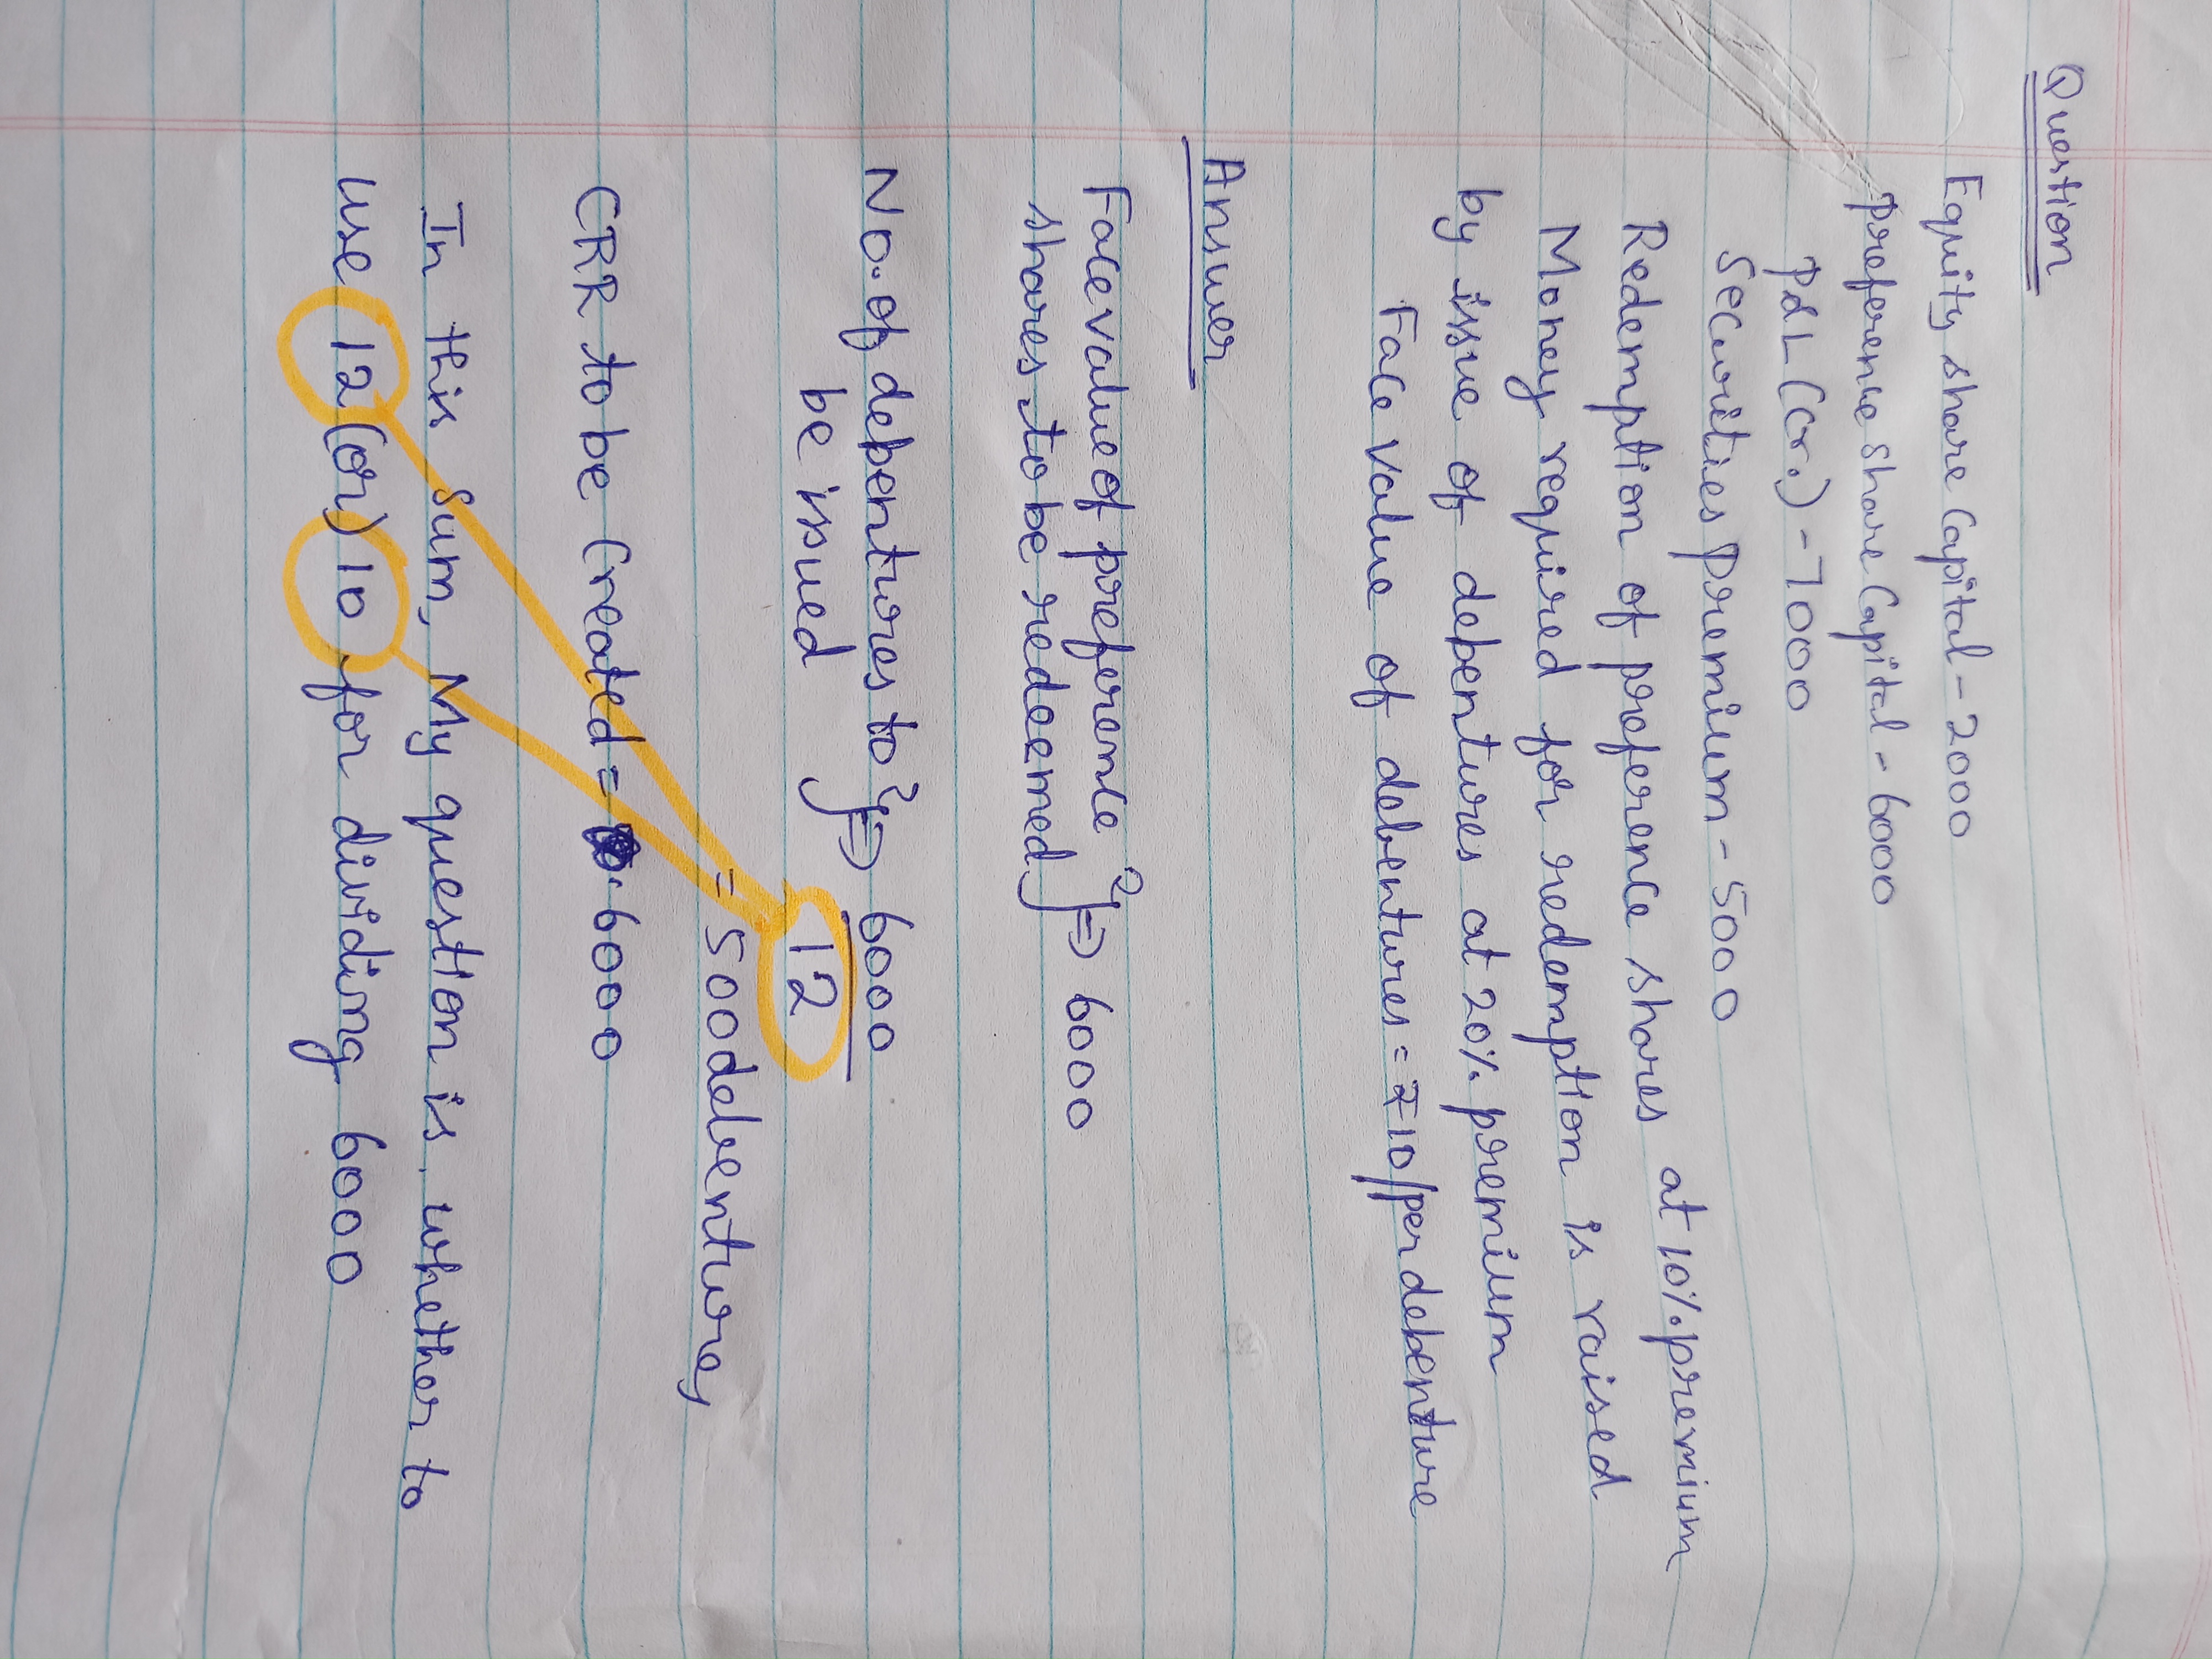 Question
Equity share Capital - 2000
Preference share Capital - 6000
P&L (cr.) - 7000
Securities Premium - 5000
Redemption of preference shares at 10% premium
Money required for redemption is raised
by issue of debentures at 20% premium
Face value of debentures = ₹10/per debenture
Answer
Face value of preference
shares to be redeemed } => 6000
No. of debentures to
be issued } => 6000
12
= 500 debentures
CRR to be Created = 6000
In this sum, My question is whether to
use 12 (or) 10 for dividing 6000